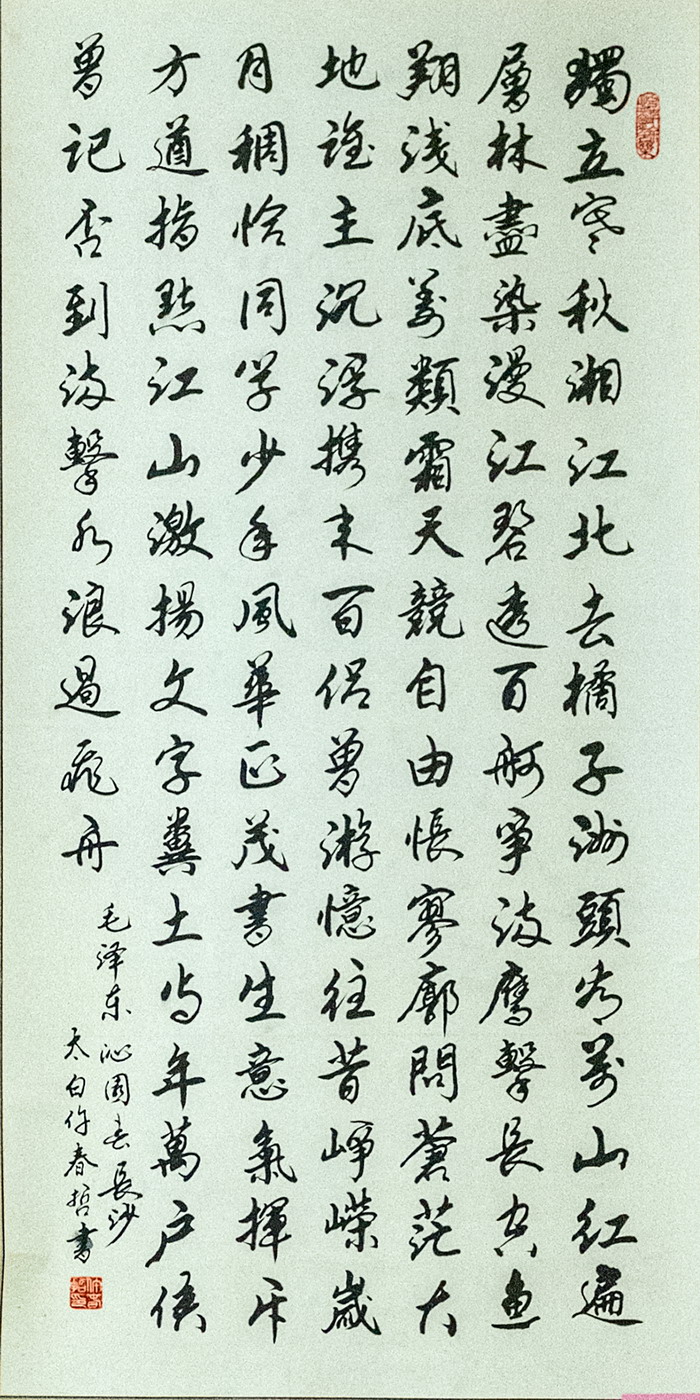 獨立寒秋湘江北去橘子洲頭看萬山紅遍
層林盡染漫江碧透百舸爭流鷹擊長空魚
翔淺底萬類霜天競自由悵寥廓問蒼茫大
地誰主沉浮携来百侶曾游憶往昔崢嶸歲
月稠恰同学少年風華正茂書生意氣揮斥
方遒指點江山激揚文字糞土当年萬户侯
曾記否到流擊水浪遏飛舟
毛泽东沁園春長沙
太白仵春哲書